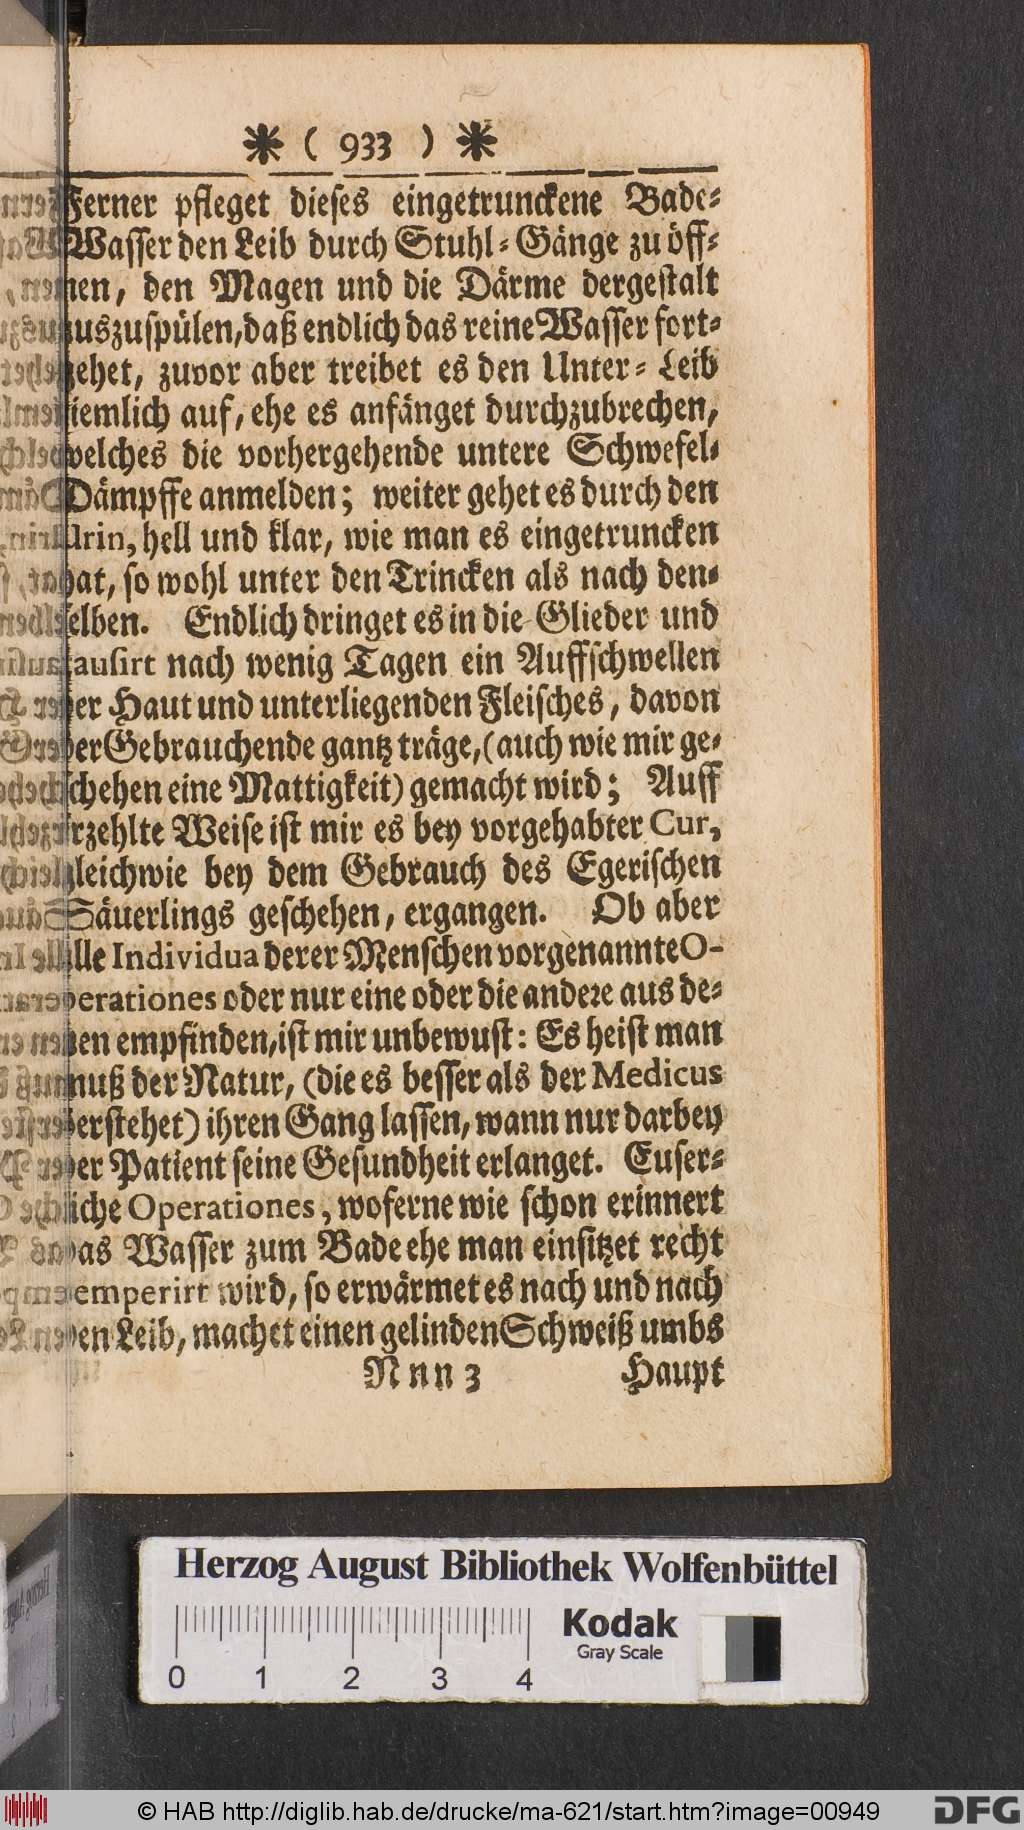 ❋ ( 933 ) ❋
Ferner pfleget dieses eingetrunckene Bade-
Wasser den Leib durch Stuhl-Gänge zu öff-
nen, den Magen und die Därme dergestalt
auszuspülen, daß endlich das reine Wasser fort-
gehet, zuvor aber treibet es den Unter-Leib
ziemlich auf, ehe es anfänget durchzubrechen,
welches die vorhergehende untere Schwefel-
Dämpffe anmelden; weiter gehet es durch den
Urin, hell und klar, wie man es eingetruncken
hat, so wohl unter den Trincken als nach den-
selben. Endlich dringet es in die Glieder und
causirt nach wenig Tagen ein Auffschwellen
der Haut und unterliegenden Fleisches, davon
der Gebrauchende gantz träge, (auch wie mir ge-
schehen eine Mattigkeit) gemacht wird; Auff
erzehlte Weise ist mir es bey vorgehabter Cur,
gleichwie bey dem Gebrauch des Egerischen
Säuerlings geschehen, ergangen. Ob aber
alle Individua derer Menschen vorgenannte O-
perationes oder nur eine oder die andere aus de-
nen empfinden, ist mir unbewust: Es heist man
muß der Natur, (die es besser als der Medicus
verstehet) ihren Gang lassen, wann nur darbey
der Patient seine Gesundheit erlanget. Euser-
liche Operationes, woferne wie schon erinnert
das Wasser zum Bade ehe man einsitzet recht
temperirt wird, so erwärmet es nach und nach
den Leib, machet einen gelinden Schweiß umbs
Nnn 3 Haupt
Herzog August Bibliothek Wolfenbüttel
Kodak
Gray Scale
0 1 2 3 4
© HAB http://diglib.hab.de/drucke/ma-621/start.htm?image=00949
DFG